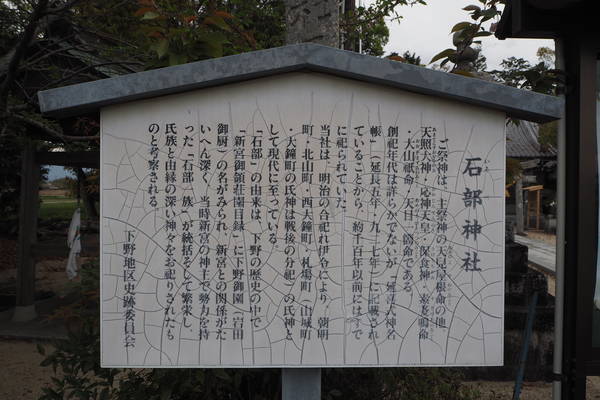 石部神社
ご祭神は、主祭神の天児屋根命の他
天照大神・応神天皇・保食神・素戔嗚命
・大山祇命・天目一箇命である。
創祀年代は詳らかでないが、「延喜式神名
帳」（延長五年・九二七年）に記載され
ていることから、約千百年以前にはすで
に祀られていた。
当社は、明治の合祀れい令により、朝明
町・北山町・西大鐘町・札場町（山城町
・大鐘町の氏神は戦後の分祀）の氏神と
して現代に至っている。
「石部」の由来は、下野の歴史の中で
「新宮御領荘園目録」に下野御園（岩田
御厨）の名がみられ、新宮との関係がた
いへん深く、当時新宮の神主で勢力を持
った「石部一族」が統括をして繁栄し、
氏族と由縁の深い神々をお祀りされたも
のと考察される。
下野地区史跡委員会